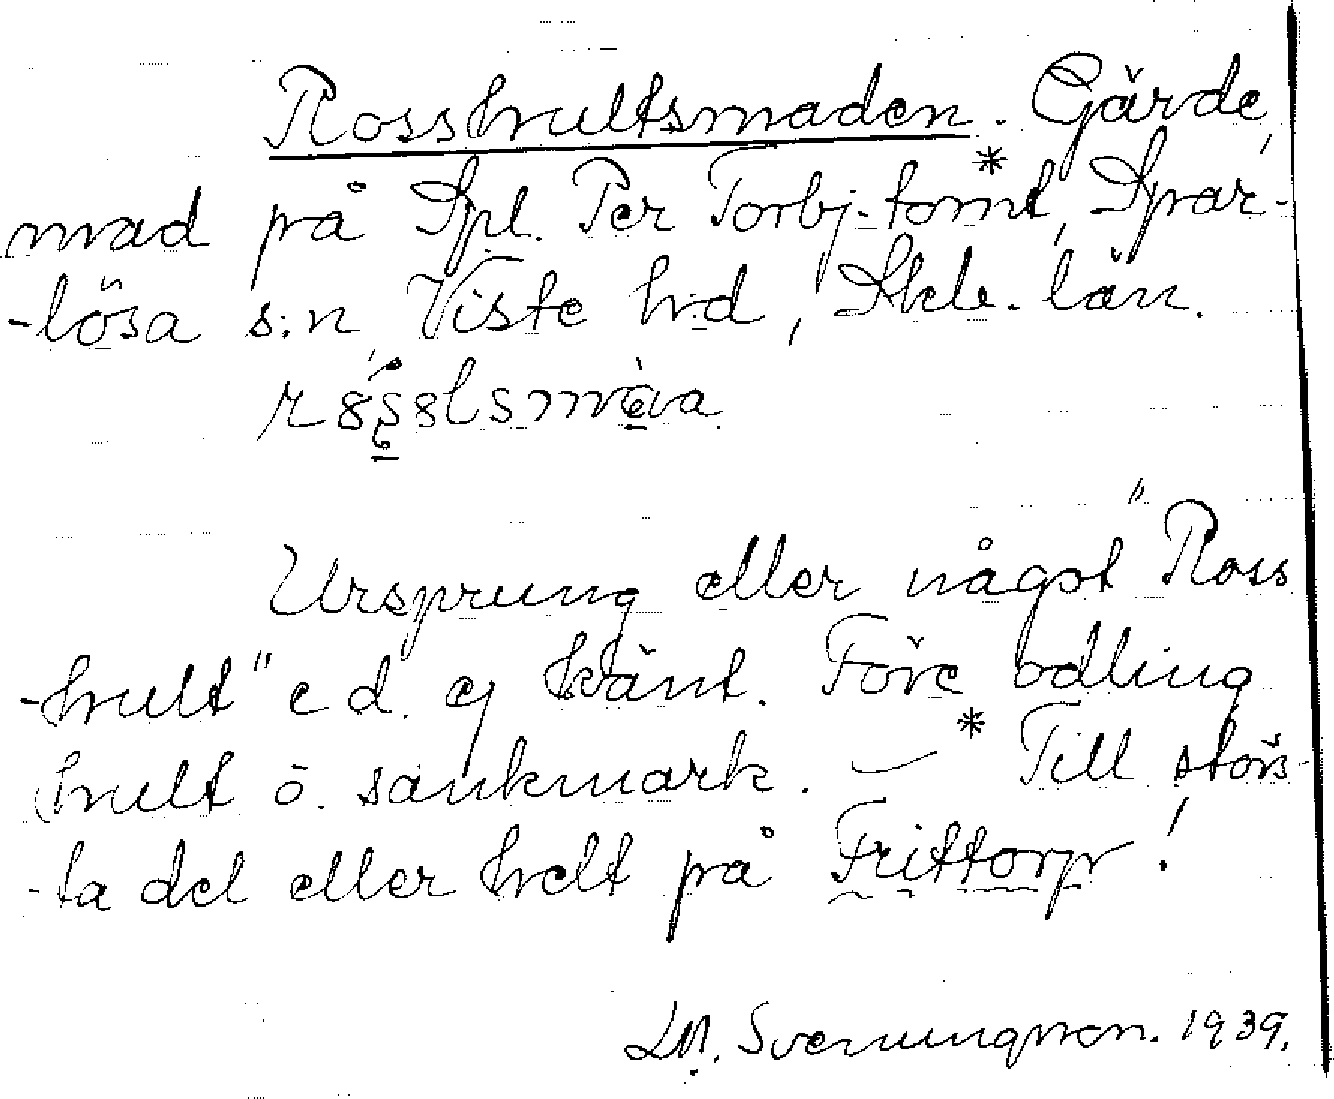 Rosshultsmaden. Gärde,
mad på Spl. Per Torbj.-tomt*, Spar-
-lösa s:n, Viste h:d, Skb. län.
Ursprung eller något "Ross
-hult" e d. ej känt. Före odling
hult o. sankmark. — * Till törs-
-ta del eller helt på Frittorp!
Svenungsson. 1939.